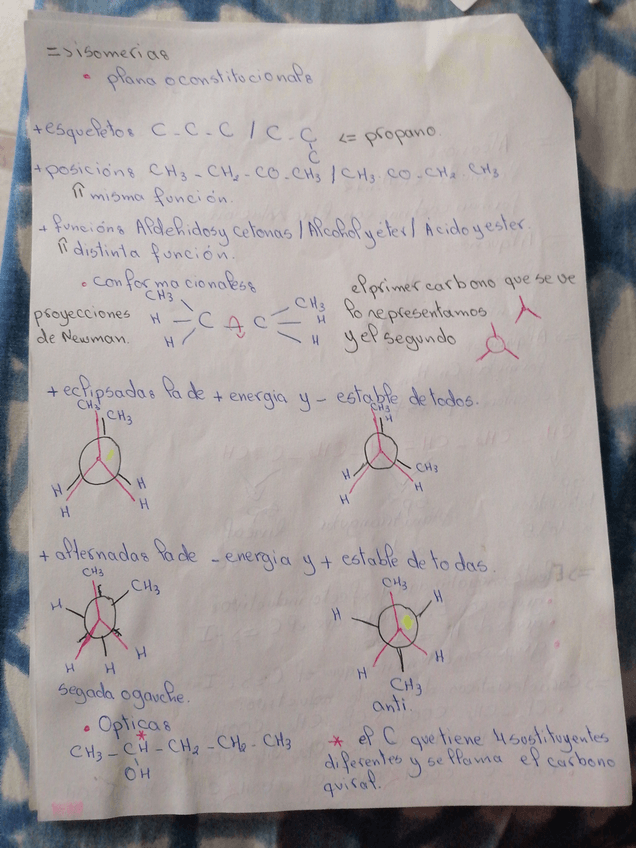 => isomerias
• plana o constitucionals
+ esqueletos C - C - C / C - C <= propano.
C
+ posicións CH3 - CH2 - CO - CH3 / CH3 - CO - CH2 - CH3
⇑ misma función.
+ funcións Aldehidos y cetonas / Alcohol y éter / Ácido y ester.
⇑ distinta función.
• conformacionaless
el primer carbono que se ve
lo representamos
y el segundo
proyecciones
de Newman.
CH3 CH3
H C C H
H H
+ eclipsadas la de + energia y - estable de todos.
CH3 CH3
CH3 H
H H H CH3
H H H H
+ alternadas la de - energia y + estable de todas.
CH3 CH3 CH3
H H H
H H H H H
CH3
segada o gauche. anti.
• Opticas
*
CH3 - CH - CH2 - CH2 - CH3
OH
* el C que tiene 4 sostituyentes
diferentes y se llama el carbono
quiral.